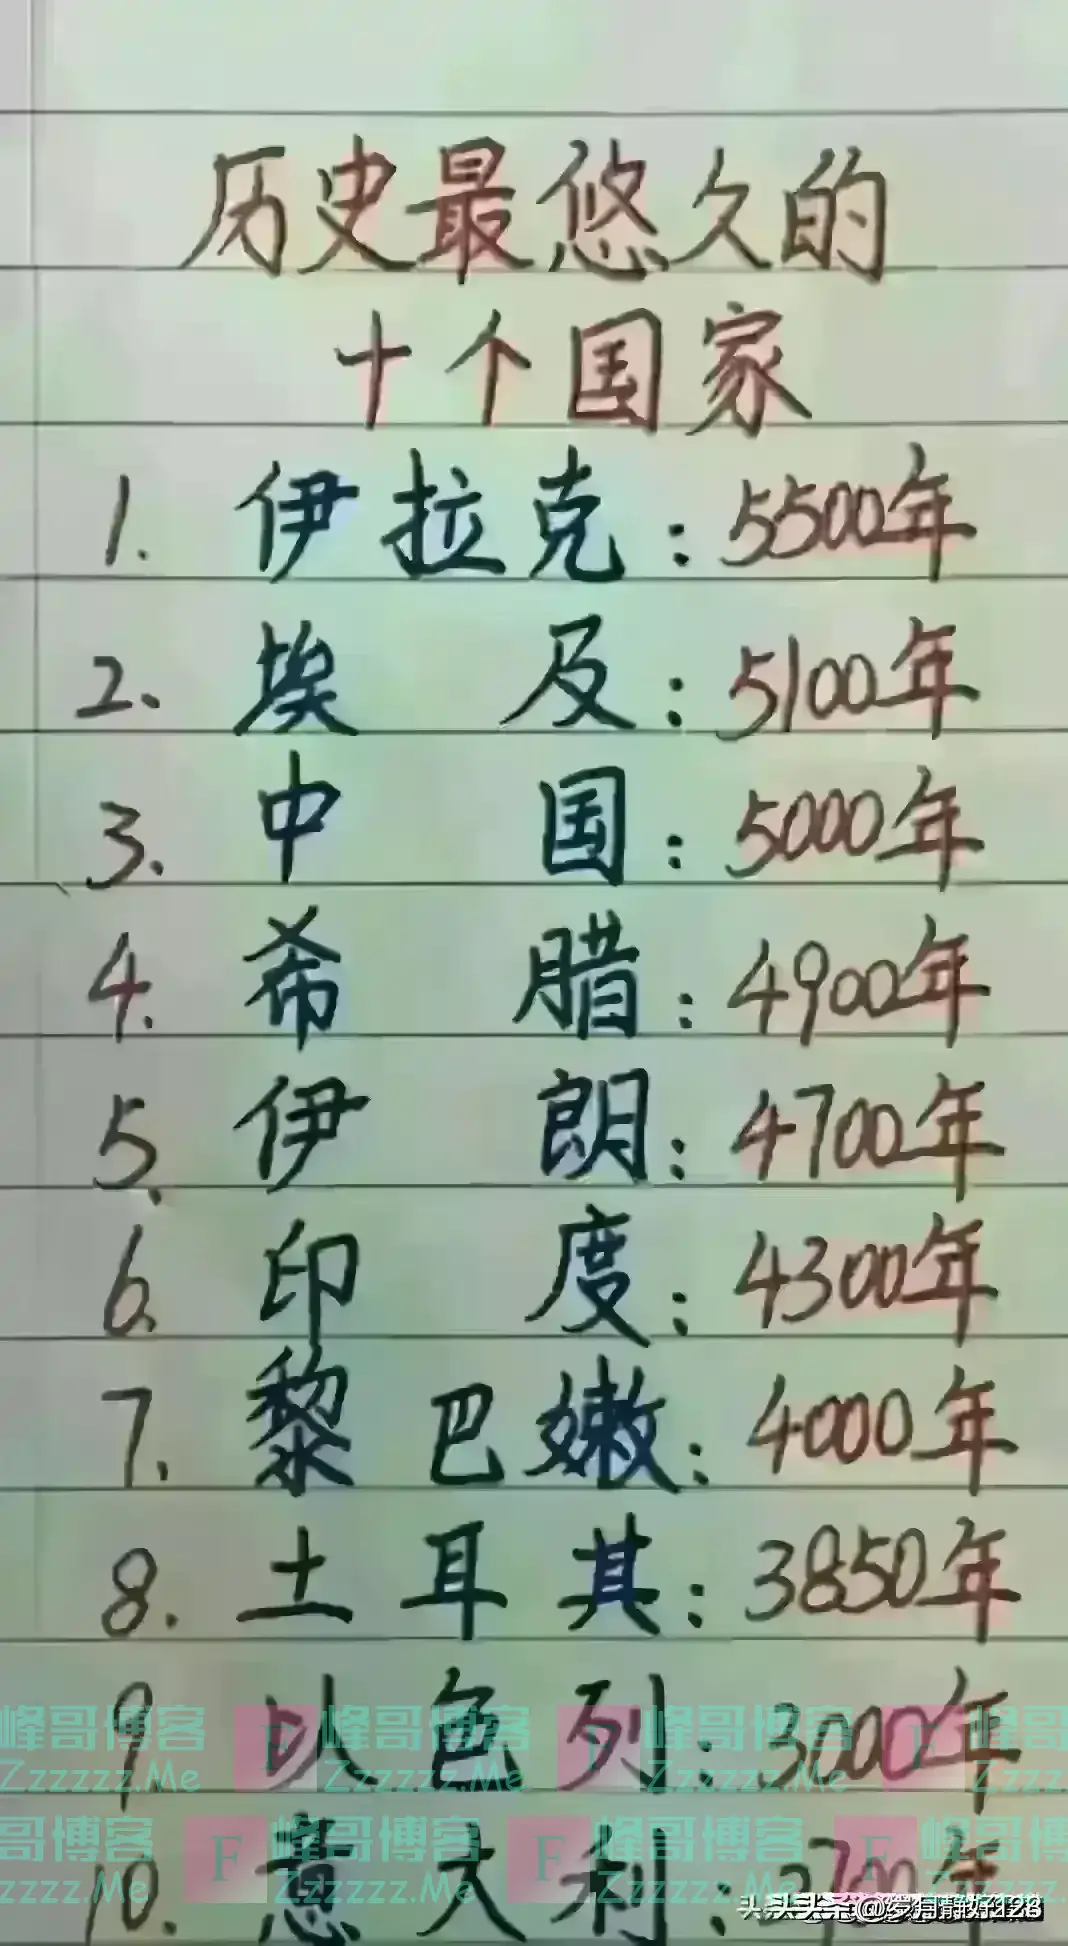 历史最悠久的
十个国家
1. 伊拉克：5500年
2. 埃及：5100年
3. 中国：5000年
4. 希腊：4900年
5. 伊朗：4700年
6. 印度：4300年
7. 黎巴嫩：4000年
8. 土耳其：3850年
9 以色列：3000年
峰哥博客 F 峰哥博客 F 峰哥博客 F 峰哥
Zzzzzz.Me Zzzzzz.Me Zzzzzz.Me Zzzzz
10. 意大利：2700年
峰哥博客 F 峰哥博客 F 峰哥博客 F 峰哥
Zzzzzz.Me Zzzzzz.Me Zzzzzz.Me Zzzzz